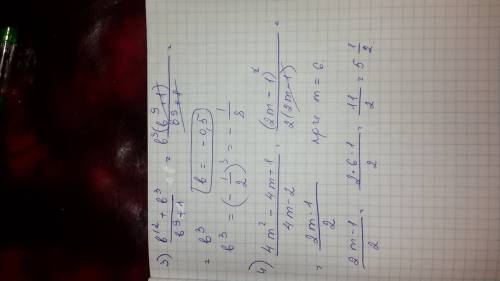 3) (b¹² + b³)/(b⁹ + 1) = b³(b⁹ + 1)/(b⁹ + 1) =
= b³ b = -0,5
b³ = (-1/2)³ = -1/8
4) (4m² - 4m + 1)/(4m - 2) = (2m - 1)²/2(2m - 1) =
= (2m - 1)/2 при m = 6
(2m - 1)/2 = (2·6 - 1)/2 = 11/2 = 5 1/2